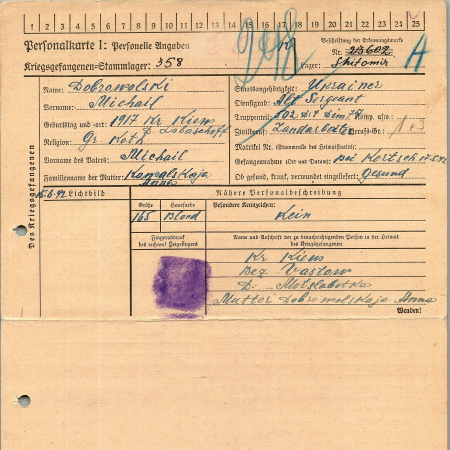 1 2 3 4 5 6 7 8 9 10 11 12 13 14 15 16 17 18 19 20 21 22 23 24 25
Personalkarte I: Personelle Angaben
Kriegsgefangenen-Stammlager: 358
Beschriftung der Erkennungsmarke
Nr. 23602
Lager: Shitomir
A
Des Kriegsgefangenen
Name: Dobrowolski
Vorname: Michail
Geburtstag und -ort: 1917 Kr. Kiew
Religion: Gr. Koth
Vorname des Vaters: Michail
Familienname der Mutter: Kowalskaja
Anna
Staatsangehörigkeit: Ukrainer
Dienstgrad: Alt Sergeant
Truppenteil: 802
Zivilberuf: Landarbeiter Berufs-Gr.:
Matrikel Nr. (Stammrolle des Heimatstaates):
Gefangennahme (Ort und Datum): Bei Kertsch
Ob gesund, krank, verwundet eingeliefert: Gesund
Lichtbild
Nähere Personalbeschreibung
Größe
165
Haarfarbe
Blond
Besondere Kennzeichen:
Kein
Fingerabdruck
des rechten Zeigefingers
Name und Anschrift der zu benachrichtigenden Person in der Heimat
des Kriegsgefangenen
Kr Kiew
Bez Vastow
D. Motslabotka
Mutter Dobrowolskaja Anna
Wenden!